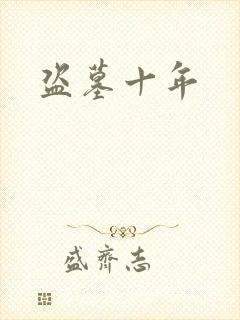 盗墓十年
盛齐志